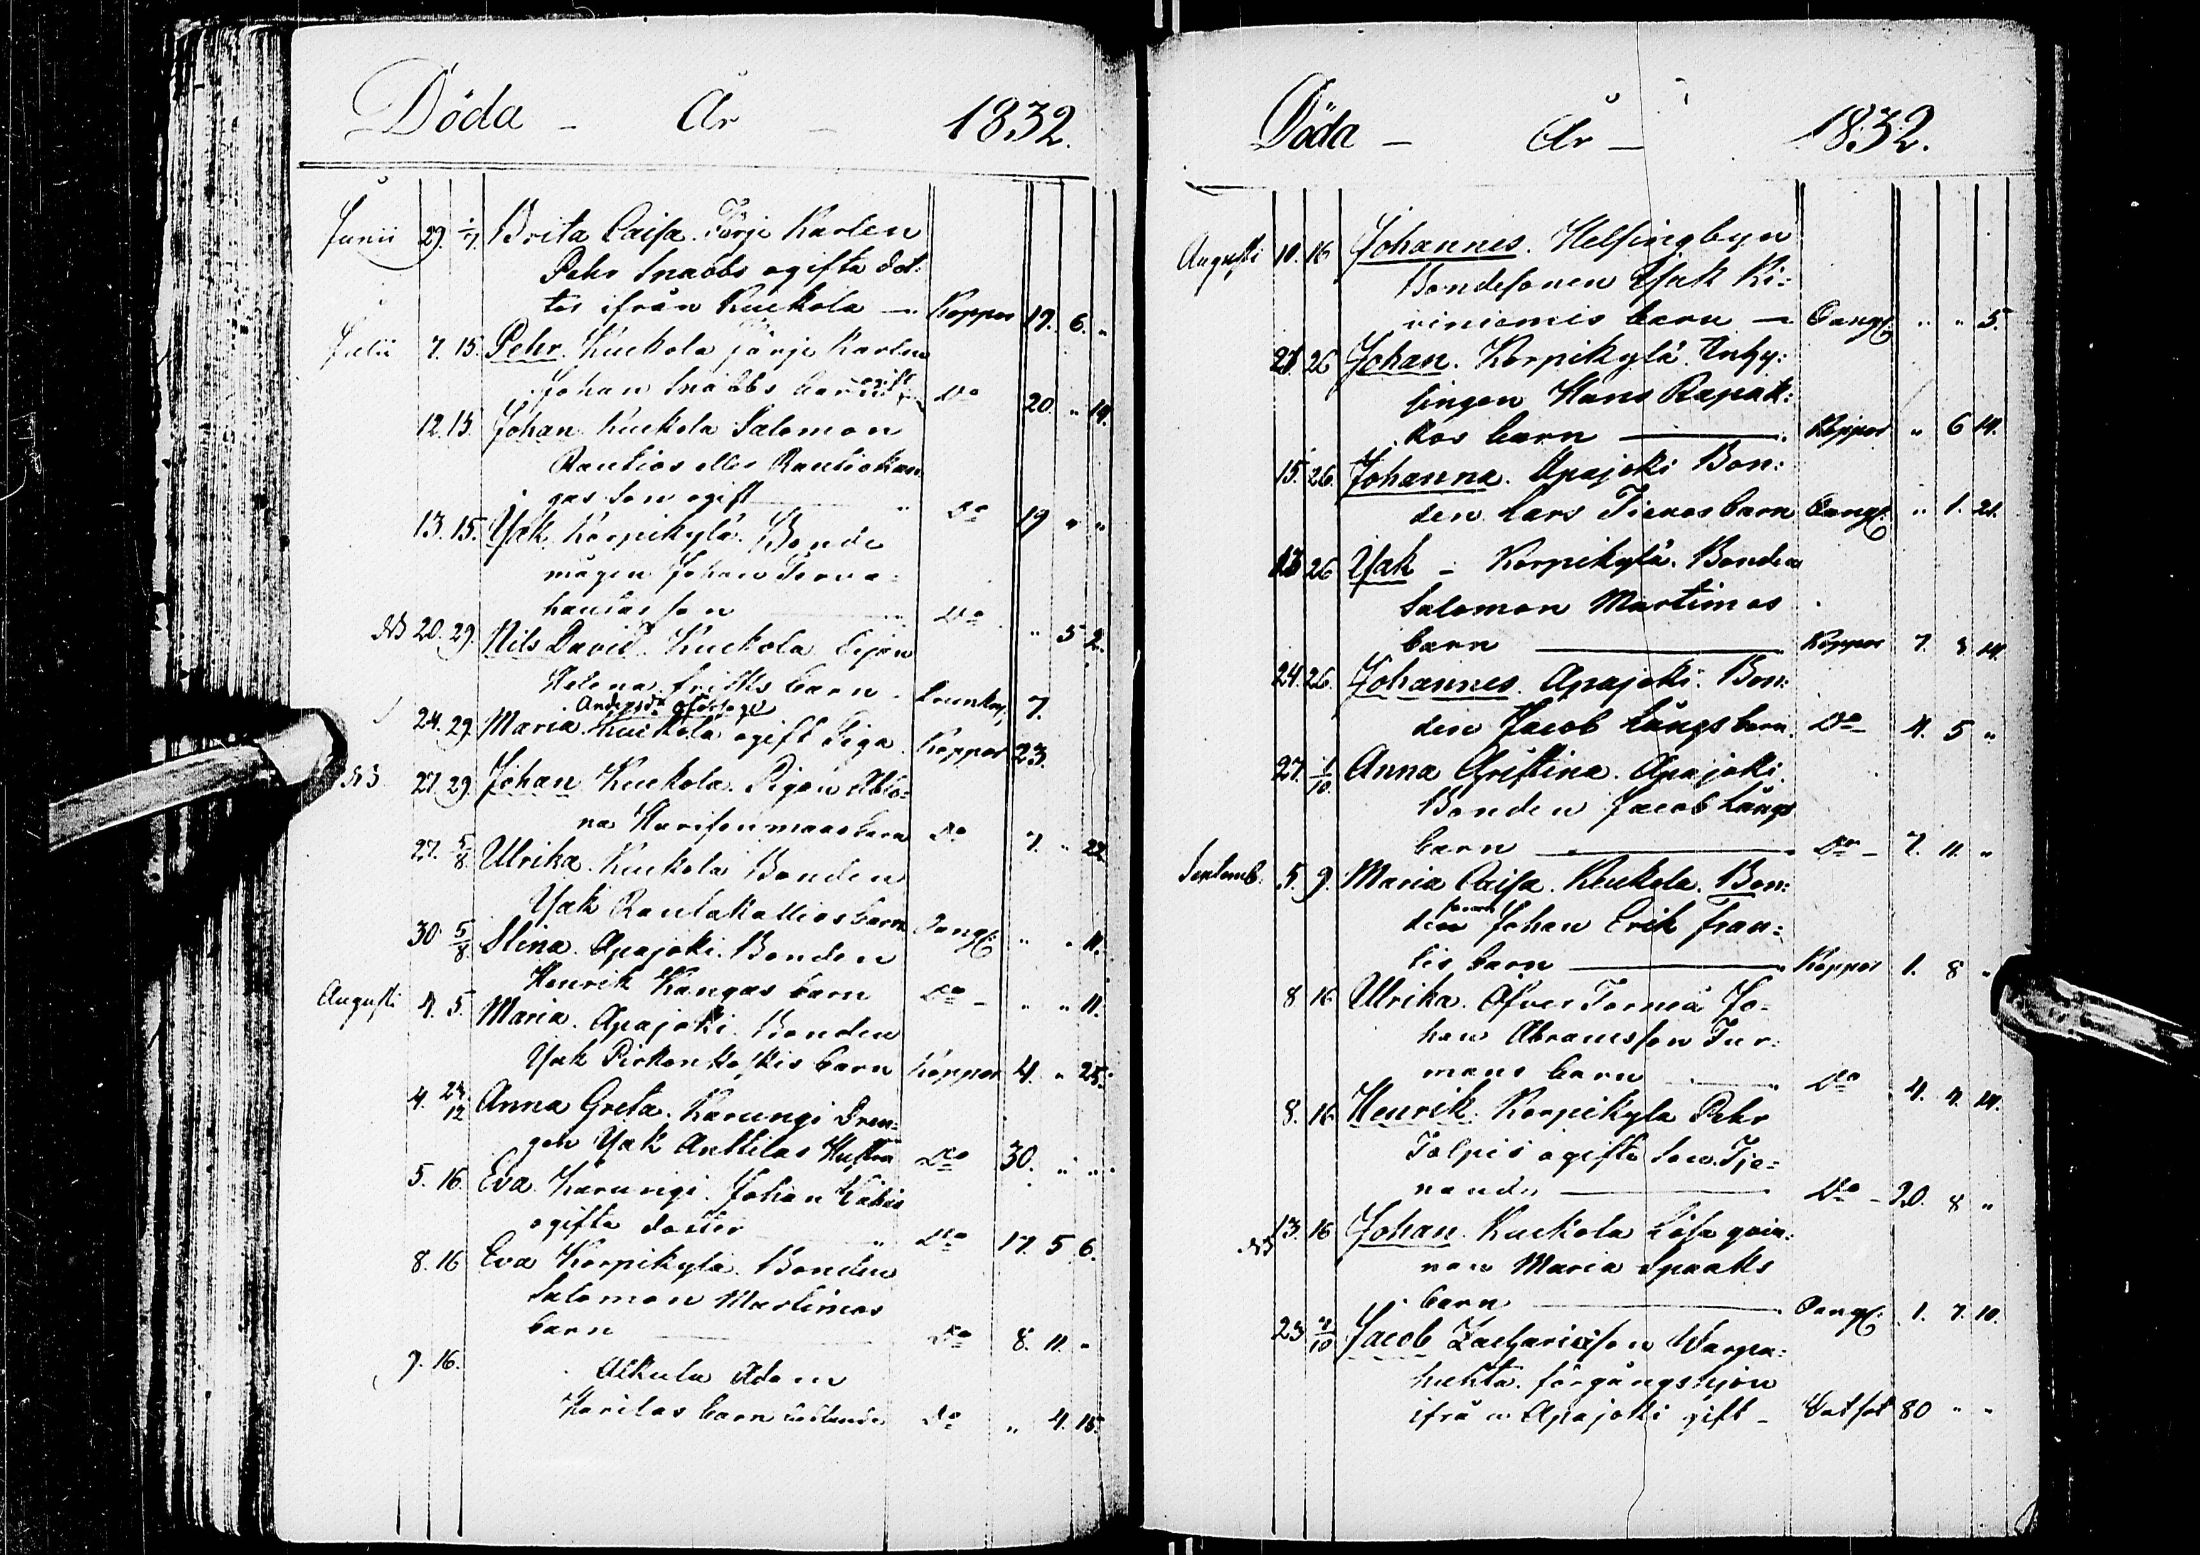 Döda - År - 1832.
Junii 29. 1/7. Brita Caisa. Färje Karlen
Pehr Snabbs ogifta dot:
ter ifrån Kuckola — Koppor 19. 6. "
Julii 7. 15. Pehr. Kuckola färje Karlen
Johan Snabbs barn ogift Do 20. " 14.
12. 15. Johan. Kuckola Salomon
Rautios eller Rautiokan
gas son ogift " Do 19 " "
13. 15. Isak. Korpikylä. Bonde
mågen Johan
son Do " 5 2.
NB 20. 29. Nils David. Kuckola Pigan
Helena barn. 7.
Andersdr
24. 29. Maria. Kuckola ogift Piga. Koppor 23.
NB 27. 29. Johan Kuckola. Pigan
barn Do 7. " 22.
27. 5/8 Ulrika. Kuckola Bonden
Isak Rautakallios barn Dangs: " " 11.
30. 5/8 Stina. Apajoki. Bonden
Henrik Kangas barn Do - " " 11.
Augusti 4. 5. Maria. Apajoki. Bonden
Isak barn Koppor 4. " 25.
4. 12 Anna Greta. Karungi Dren:
gen Isak Anttilas Hustru Do 30. " "
5. 16. Eva. Karungi. Johan
ogifta dotter " Do 17. 5. 6.
8. 16 Eva Korpikylä. Bonden
Salomon Martimos
barn Do 8. 11. "
9. 16. Alkula Adam
barn Do " 4. 15.
Döda - År - 1832.
Augusti 10. 16 Johannes. Helsingbyn
Bondesonen Isak Ki:
viniemis barn — Dangs: " " 5.
21. 26 Johan. Korpikylä. Inhy:
singen Hans Rapak:
kos barn — Koppor " 6 14.
15. 26. Johanna. Apajoki Bon:
den Lars barn Dangs: " 1. 21.
26 Isak - Korpikylä. Bonden
Salomon Martimos
barn — Koppor 7. 3 14.
24. 26. Johannes. Apajoki. Bon:
den Jacob Långs barn. Do 4. 5 "
27. 1/10 Anna Christina. Apajoki.
Bonden Jacob Långs
barn — Do - 7. 11. "
Septemb. 5. 9. Maria Caisa. Kuckola. Bon:
den Johan Erik Fran:
tis barn — Koppor 1. 8 "
8 16 Ulrika. Öfver Torneå Jo-
han Abramsson Fur:
mans barn " Do 4. 4. 14.
8. 16 Henrik. Korpikylä Pehr
Tolpis ogifta son. Tje-
nande — Do - 20. 8 "
NB 13. 16 Johan. Kuckola Lösa qvin:
nan Maria Spaaks
barn — Dangs: 1. 7. 10.
23 7/10 Jacob Zachariæson Warpu:
huhta. förgångshjon
ifrån Apajoki gift - Watsot 80 " "